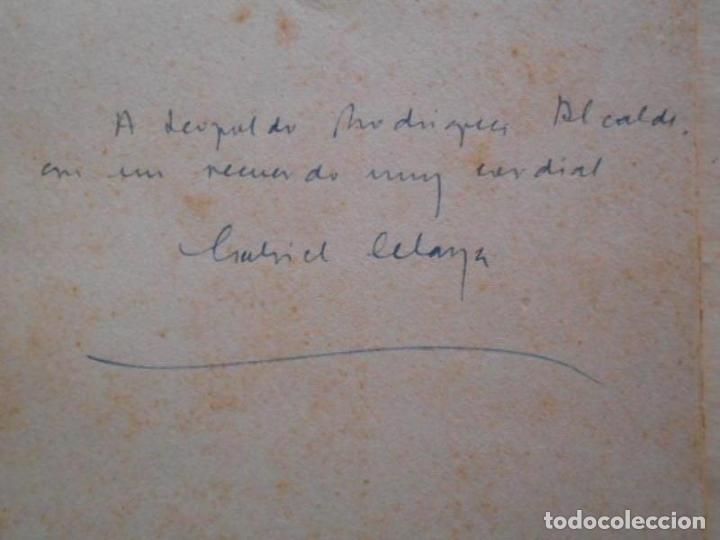 A Leopoldo Rodriguez Alcalde,
con un recuerdo muy cordial
Gabriel Celaya
todocoleccion
todocoleccion.net